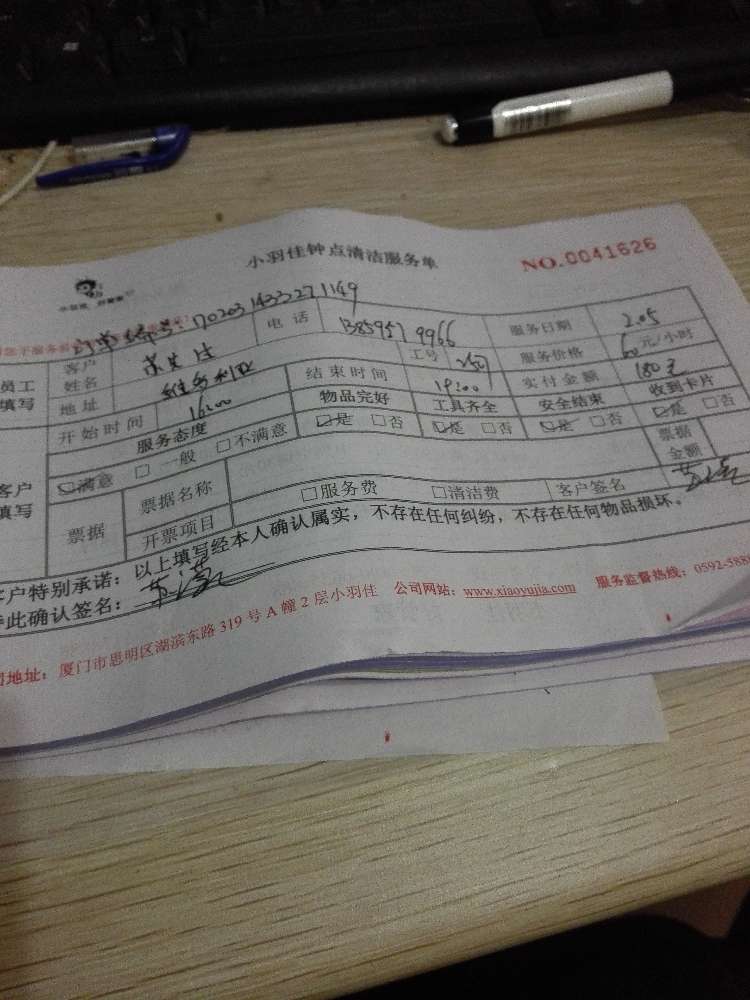 小羽佳钟点清洁服务单
NO.0041626
订单编号：170203143327 1149
员工填写 客户姓名 电话 服务日期 2.05
地址 工号 服务价格 60元/小时
开始时间 16:00 结束时间 19:00 实付金额 180元
客户填写 服务态度 物品完好 工具齐全 安全结束 收到卡片
☑满意 □一般 □不满意 ☑是 □否 ☑是 □否 ☑是 □否 ☑是 □否
票据 票据名称 票据金额
开票项目 □服务费 □清洁费 客户签名
客户特别承诺：以上填写经本人确认属实，不存在任何纠纷，不存在任何物品损坏。
特此确认签名：
司地址：厦门市思明区湖滨东路 319 号 A 幢 2 层小羽佳 公司网站：www.xiaoyujia.com 服务监督热线：0592-588